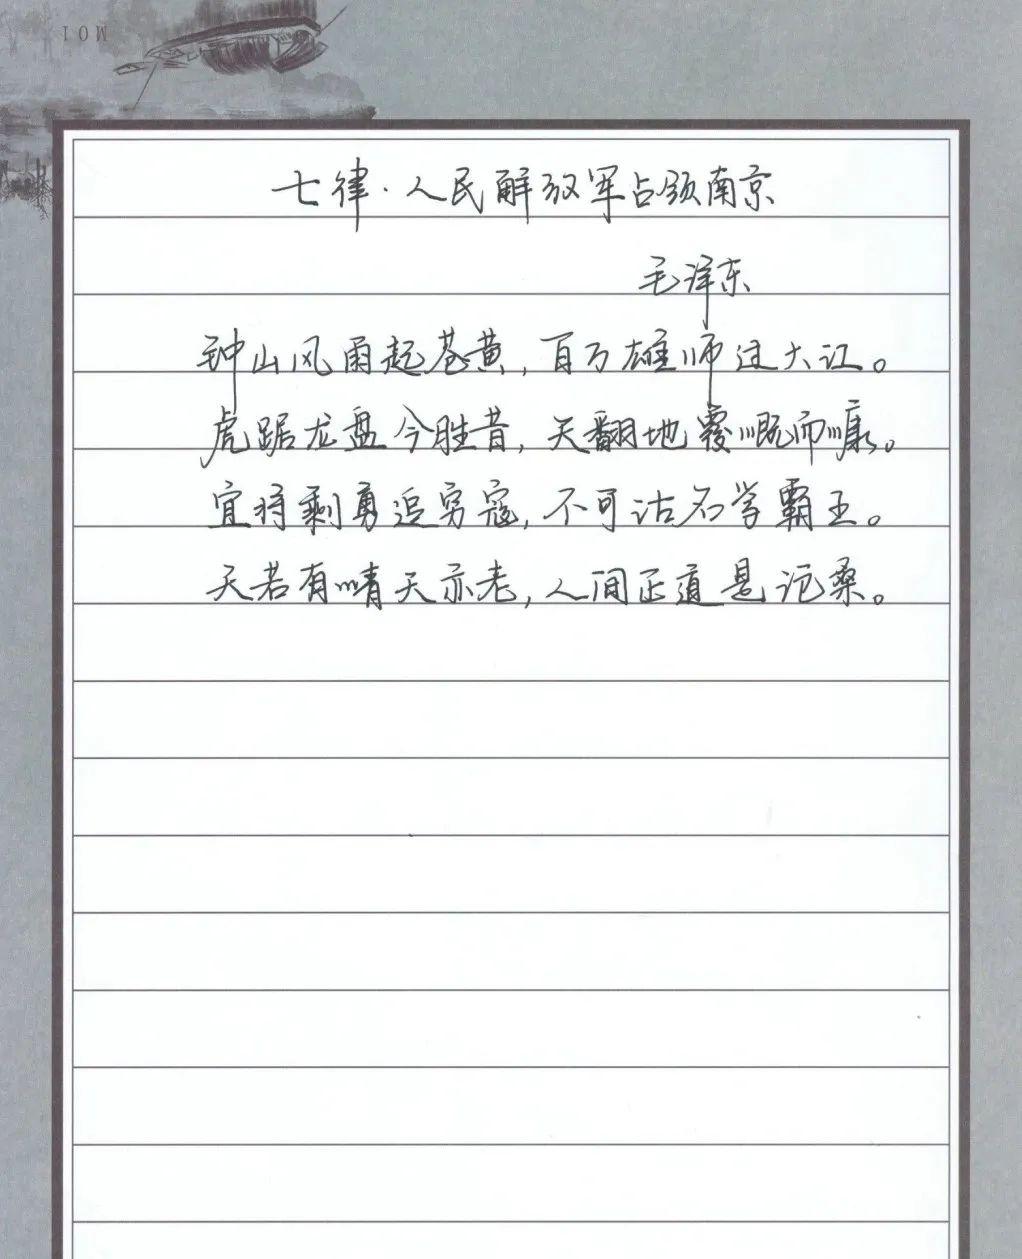 七律·人民解放军占领南京
毛泽东
钟山风雨起苍黄,百万雄师过大江。
虎踞龙盘今胜昔,天翻地覆慨而慷。
宜将剩勇追穷寇,不可沽名学霸王。
天若有情天亦老,人间正道是沧桑。